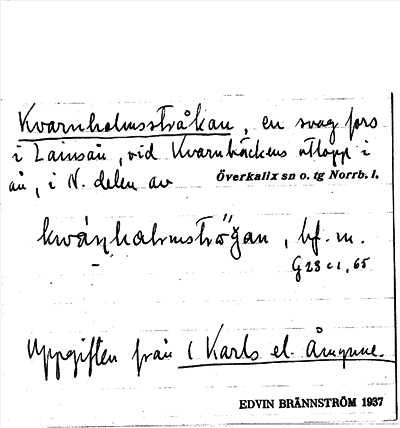 Kvarnholmsstråkan, en svag fors
i Lainsån, vid Kvarnbäckens utlopp i
ån, i N. delen av Överkalix sn o. tg Norrb. l.
bf. m.
G 23 c 1, 65
Uppgiften från (Karls el. Åmynne.
EDVIN BRÄNNSTRÖM 1937